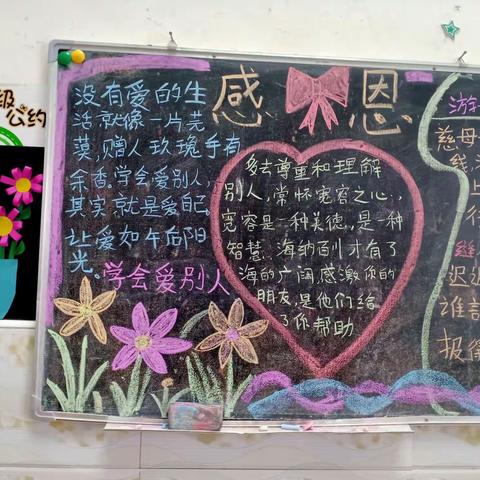 级
公约
感恩
没有爱的生
活就像一片荒
漠,赠人玫瑰手有
余香,学会爱别人,
其实就是爱自己,
让爱如午后阳
光。
学会爱别人
多去尊重和理解
别人,常怀宽容之心,
宽容是一种美德,是一种
智慧,海纳百川才有了
海的广阔,感激你的
朋友,是他们给
了你帮助
游
慈母
线,
缝,
迟迟
谁言
报